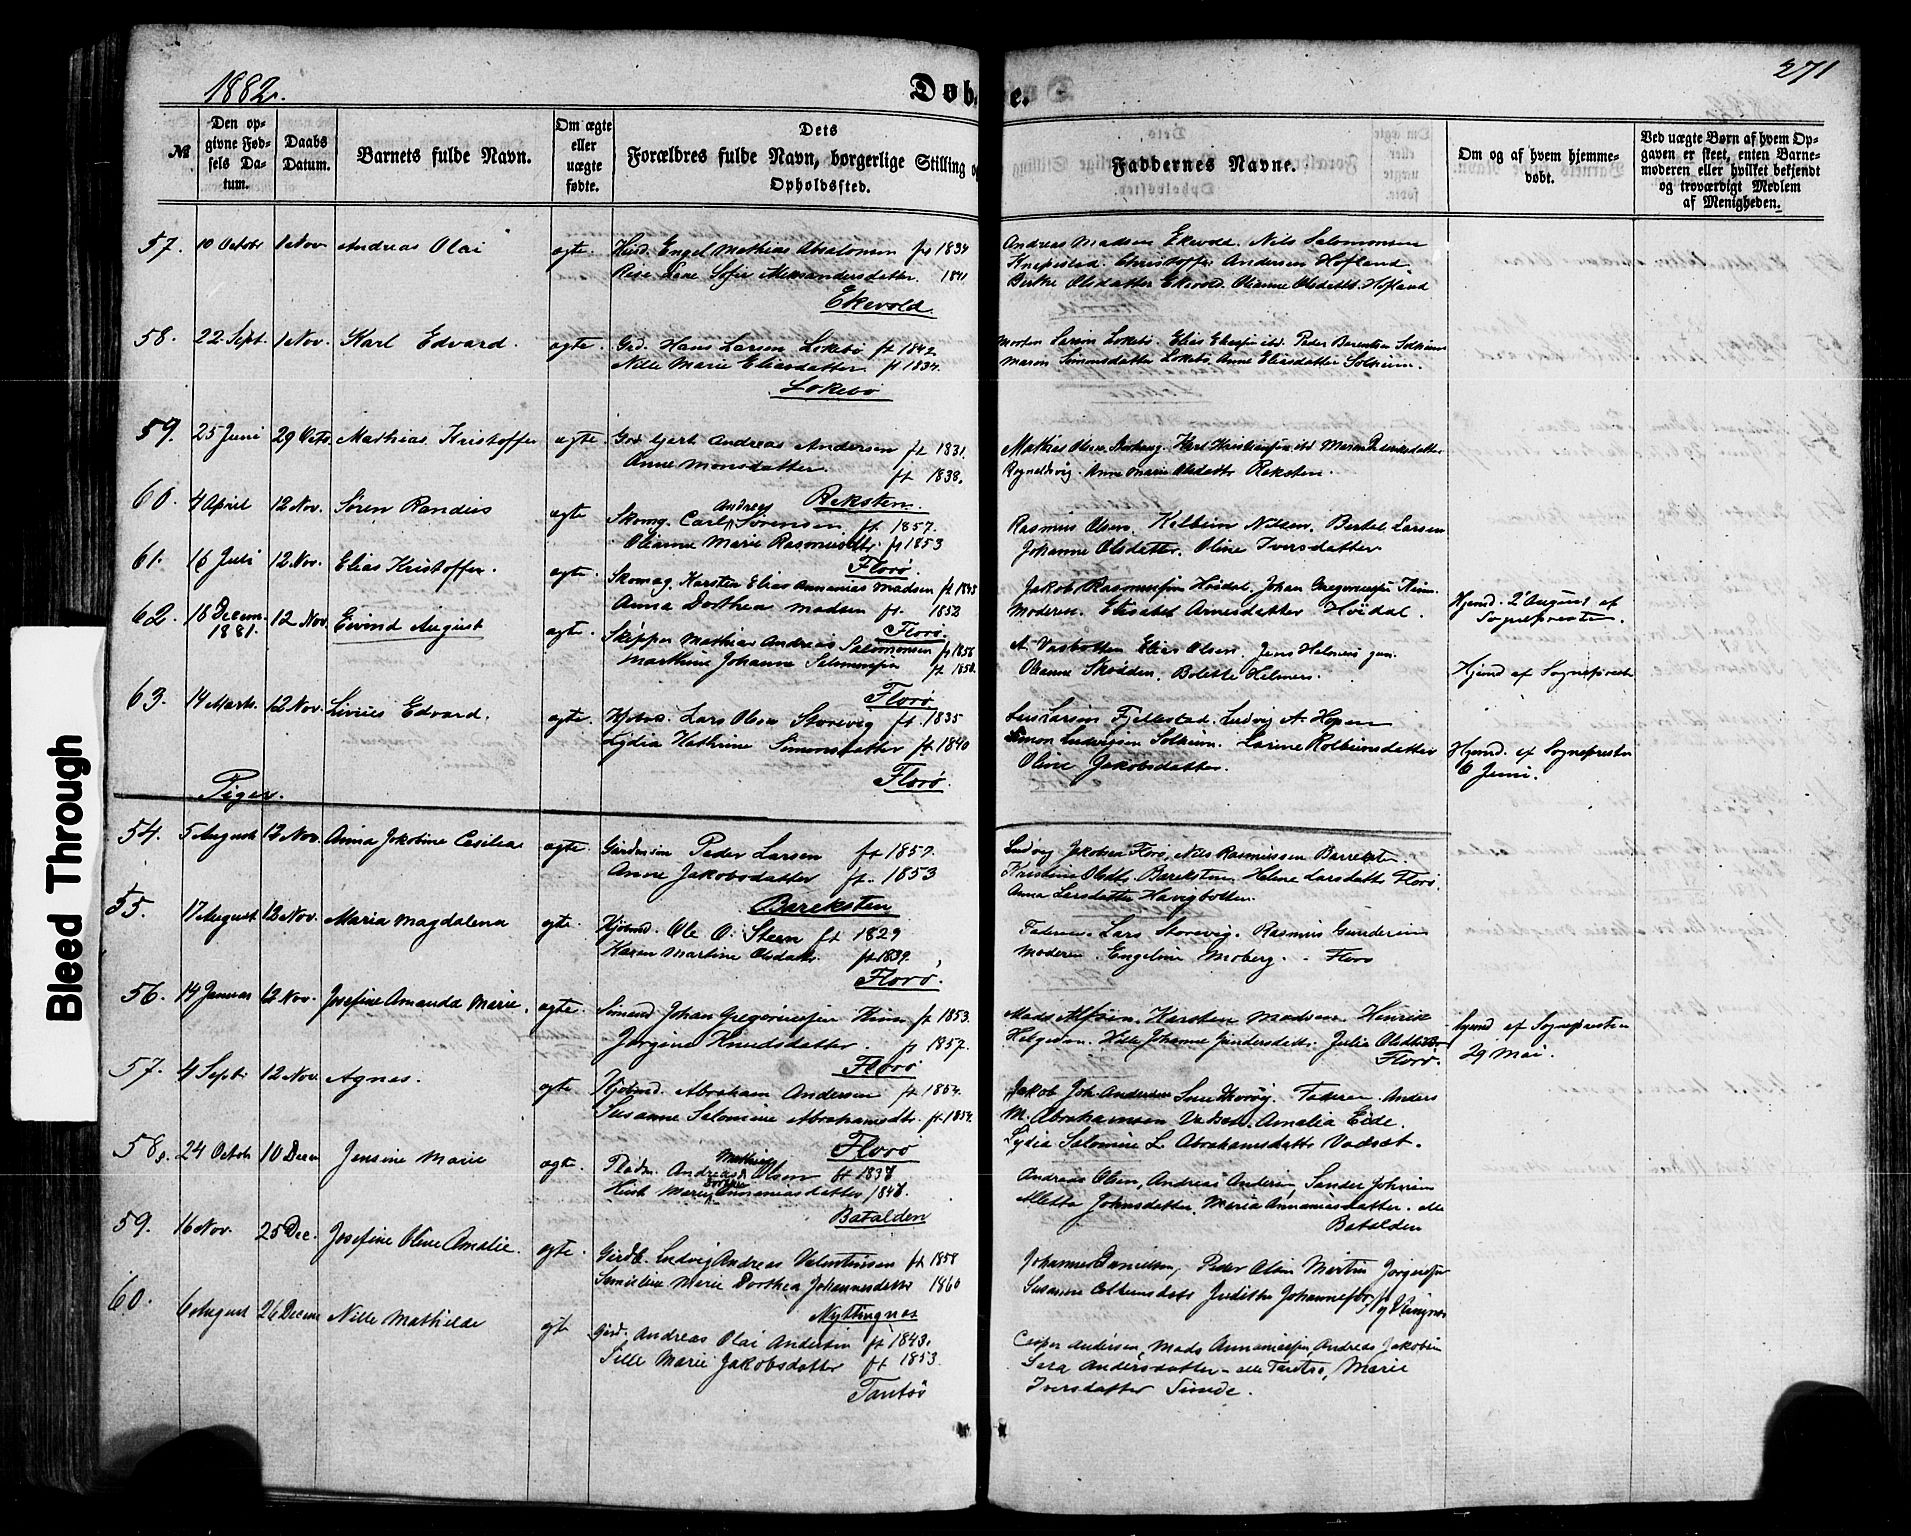 1882.
Døbte.
271
№
Den opgivne Fødsels Datum.
Daabs Datum.
Barnets fulde Navn.
Om ægte eller uægte fødte.
Dets Forældres fulde Navn, borgerlige Stilling og Opholdssted.
Faddernes Navne.
Om og af hvem hjemmedøbt.
Ved uægte Børn af hvem Opgaven er skeet, enten Barnemoderen eller hvilket bekjendt og troværdigt Medlem af Menigheden.
57. 10 Octobr 1 Nov Andreas Olai ægte. Engel Mathias Absalonsen ft 1834
Lene Sofie Alexandersdatter. 1841
Ekevold.
Andreas Madsen Ekevold. Nils Salomonsen
Knapstad. Christoffer Andersen Hofland
Berthe Olsdatter Ekevold. Olianne Olsdatter Hofland
58. 22 Sept. 1 Nov. Karl Edvard. ægte. Grd. Hans Larsen Løkebø ft 1842
Nille Marie Eliasdatter ft 1834.
Løkebø
Morten Larsen Løkebø. Elias Eliassen ibd. Peder Berentsen Solheim
Maren Simonsdatter Løkebø. Anne Eliasdatter Solheim.
59. 25 Juni 29 Octb. Mathias Kristoffer ægte. Andreas Andersen ft 1831.
Anne Monsdatter. ft 1838.
Reksten
Mathias Olsen. Karl Kristiansen ibd
Anne Marie Olsdatter Reksten.
60. 4 April 12 Nov. Søren Randius ægte Skomg. Carl Andreas Sørensen ft 1857.
Olianne Marie Rasmusdtr. ft 1853
Florø
Rasmus Olsen. Kolbein Nilsen. Bertel Larsen
Johanne Olsdatter. Oline Iversdatter
61. 16 Juli 12 Nov. Elias Kristoffer. ægte. Skomag. Karsten Elias Annanias Madsen ft 1845
Anna Dorthea Madsen ft. 1852
Florø.
Jakob Rasmussen Høidal. Johan Gregoriussen Kim.
Moderen. Elisabet Arnesdatter Høidal.
Hjemd. 2 August af
Sognepresten.
62. 18 Decem. 1881. 12 Nov. Eivind August ægte. Skipper Mathias Andreas Salomonsen ft 1856
Marthine Johanne Salomonsen ft 1858.
Florø
A. Vasbotten Elias Olsen. Jens Helmers jun.
Olianne Skorden. Bolette Helmers.
Hjemd af Sognepresten
63. 14 Marts. 12 Nov. Livius Edvard. ægte. Lars Olsen Storevig ft. 1835
Lydia Kathrine Simonsdatter ft 1840
Florø.
Lars Larsen Fjellestad. Ludvig A. Hopen
Simon Ludvigsen Solheim. Larine Kolbeinsdatter
Oline Jakobsdatter.
Hjemd. af Sognepresten
6 Juni.
Piger.
54. 5 August 12 Nov. Anna Jakobine Cecilia ægte. Peder Larsen ft 1857.
Anne Jakobsdatter ft. 1853
Bareksten
Ludvig Jakobsen Florø, Nils Rasmussen Bareksten.
Kristine Olsdtr. Bareksten. Helene Larsdatter Florø.
Anna Larsdatter Havigbotten.
55. 17 August 12 Nov. Maria Magdalena ægte. Ole O. Steen ft 1829
Karen Martine Olsdatr. ft 1839.
Florø.
Faderen. Lars Storevig. Rasmus Gundersen
Moderen. Engeline Moberg. - Florø
56. 14 Januar 12 Nov. Josefine Amanda Marie. ægte. Johan Gregoriussen Kim ft 1853.
Jørgine Knudsdatter. ft 1857.
Florø
Mads Karsten Madsen. Henrik
Helgesen. Hille Johanne Julie Olsdatter
Florø.
hjemd af Sognepresten
29 Mai.
57. 4 Sept. 12 Nov. Agnes. ægte. Abraham Andersen ft 1854.
Susanne Salomine Abrahamsdtr. ft 1854.
Florø
Jakob Joh. Andersen Faderen. Anders
M. Abrahamsen Vadset. Amalia Eide.
Lydia Salomine L. Abrahamsdatter Vadset.
58. 24 Octobr 10 Decem Jensine Marie ægte. Andreas Mathias Olsen ft 1838
Marie Annaniasdatter 1848.
Batalden
Andreas Olsen, Andreas Andersen, Sander Johnsen
Alletta Johnsdatter. Maria Annaniasdatter. alle
Batalden
59. 16 Nov. 25 Dec. Josefine Oline Amalie. ægte. Ludvig Andreas Valentinsen ft 1858
Marie Dorthea Johannesdatter 1860
Nyttingnes
Johannes Danielsen, Peder Olsen Martin Jørgensen
60. 6 August 26 Decem Nille Mathilde ægt. Andreas Olai Andersen ft 1843.
Sille Marie Jakobsdatter ft 1853.
Tantsø
Casper Andersen, Mads Annaniassen, Andreas Jakobsen
Sara Andersdatter - alle Tantsø, Marie
Iversdatter Sunde.
Bleed Through